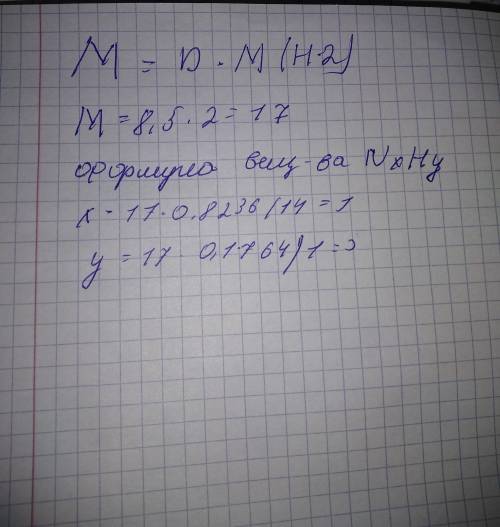 M = D · M (H2)
M = 8,5 · 2 = 17
формула вещ-ва NxHy
x = 17 · 0,8236/14 = 1
y = 17 · 0,1764/1 = 3